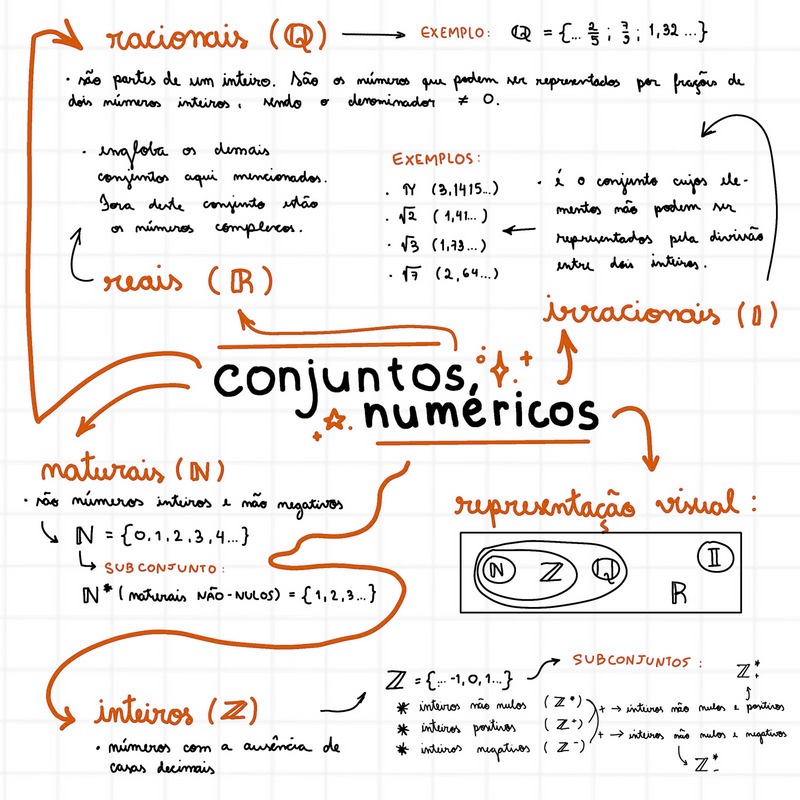 racionais (ℚ) → EXEMPLO: ℚ = {... 2/5 ; 7/9 ; 1,32 ...}
• são partes de um inteiro. São os números que podem ser representados por frações de
dois números inteiros, sendo o denominador ≠ 0.
• engloba os demais
conjuntos aqui mencionados.
Fora deste conjunto estão
os números complexos.
reais (ℝ)
EXEMPLOS:
• π (3,1415...)
• √2 (1,41...)
• √3 (1,73...)
• √7 (2,64...)
• é o conjunto cujos ele-
mentos não podem ser
representados pela divisão
entre dois inteiros.
irracionais (𝕀)
conjuntos
numéricos
naturais (ℕ)
• são números inteiros e não negativos
ℕ = {0,1,2,3,4...}
SUBCONJUNTO:
ℕ* (naturais NÃO-NULOS) = {1,2,3...}
representação visual:
ℕ ℤ ℚ ℝ 𝕀
inteiros (ℤ)
• números com a ausência de
casas decimais
ℤ = {... -1,0,1...} → SUBCONJUNTOS:
* inteiros não nulos (ℤ*)
* inteiros positivos (ℤ+)
* inteiros negativos (ℤ-)
ℤ*+
+ → inteiros não nulos e positivos
+ → inteiros não nulos e negativos
ℤ*-